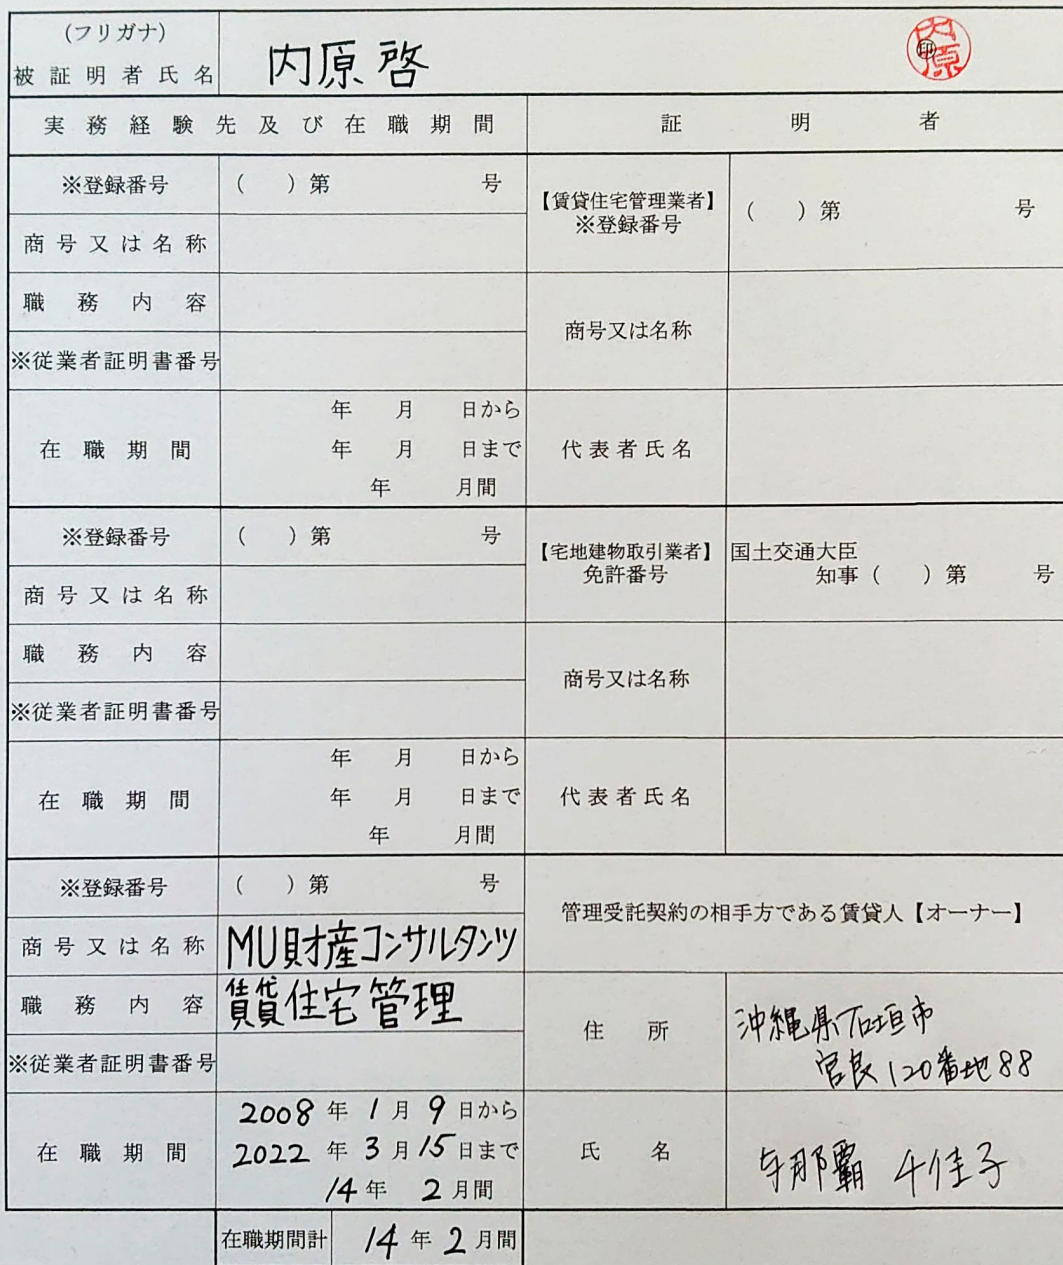 (フリガナ)
被証明者氏名 内原 啓 印 内原
実務経験先及び在職期間 証明者
※登録番号 ( )第 号
【賃貸住宅管理業者】
※登録番号 ( )第 号
商号又は名称
職務内容
商号又は名称
※従業者証明書番号
在職期間
年 月 日から
年 月 日まで
年 月間
代表者氏名
※登録番号 ( )第 号
【宅地建物取引業者】
免許番号
国土交通大臣
知事( )第 号
商号又は名称
職務内容
商号又は名称
※従業者証明書番号
在職期間
年 月 日から
年 月 日まで
年 月間
代表者氏名
※登録番号 ( )第 号
管理受託契約の相手方である賃貸人【オーナー】
商号又は名称 MU財産コンサルタンツ
職務内容 賃貸住宅管理
※従業者証明書番号
住所
沖縄県石垣市
宮良120番地88
在職期間
2008年1月9日から
2022年3月15日まで
14年2月間
氏名 与那覇 千佳子
在職期間計 14年2月間